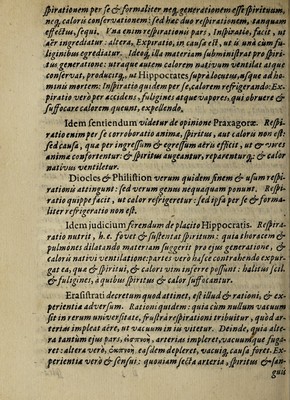 spirationem per se & formaliter neq, generationem esse spirituum,
neq, caloris conseruationem: sed hac duo respirationem, tanquam
effectus, sequi. Vna enim respirationi pars, Inspiratio, facit, ut
aër ingrediatur: altera, Expiratio, in causa est, ut is unà cum fu-
liginibus egrediatur. Ideoq, illa materiam subministrat pro spiri-
tus generatione: utraque autem calorem nativum ventilat atque
conservat, producitq, ut Hippocrates suprà locutus, usque ad ho-
minis mortem: Inspiratio quidem per se, calorem refrigerando: Ex-
piratio verò per accidens, fuligines atque vapores, qui obruere &
suffocare calorem queunt, expellendo.
Idem sentiendum videtur de opinione Praxagoræ. Respi-
ratio enim per se corroboratio anima, spiritus, aut caloris non est:
sed causa, qua per ingressum & egressum aëris efficit, ut & vires
anima confortentur: & spiritus augeantur, reparenturq; & calor
nativus ventiletur.
Diocles & Philistion verum quidem finem & usum respi-
rationis attingunt: sed verum genus nequaquam ponunt. Respi-
ratio quippe facit, ut calor refrigeretur: sed ipsa per se & forma-
liter refrigeratio non est.
Idem judicium ferendum de placito Hippocratis. Respira-
tio nutrit, h. e. fovet & sustentat spiritum: quia thoracem &
pulmones dilatando materiam suggerit pro ejus generatione, &
caloris nativi ventilatione: partes verò hasce contrahendo expur-
gat ea, qua & spiritui, & calori vim inferre possunt: halitus scil.
& fuligines, a quibus spiritus & calor suffocantur.
Erasistrati decretum quod attinet, est illud & rationi, & ex-
perientia adversum. Rationi quidem: quia cùm nullum vacuum
sit in rerum universitate, frustra respirationi tribuitur, quòd ar-
terias impleat aëre, ut vacuum in iu vitetur. Deinde, quia alte-
ra tantùm ejus pars, arterias impleret, vacuumque fuga-
ret: altera verò, easdem depleret, vacuiq, causa foret. Ex-
perientia verò & sensui: quoniam secta arteria, spiritus & san-
guis